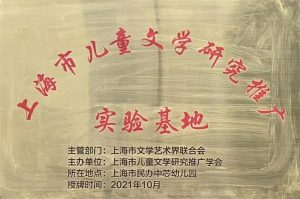 上海市儿童文学研究推广
实验基地
主管部门：上海市文学艺术界联合会
主办单位：上海市儿童文学研究推广学会
所在地点：上海市民办中芯幼儿园
授牌时间：2021年10月